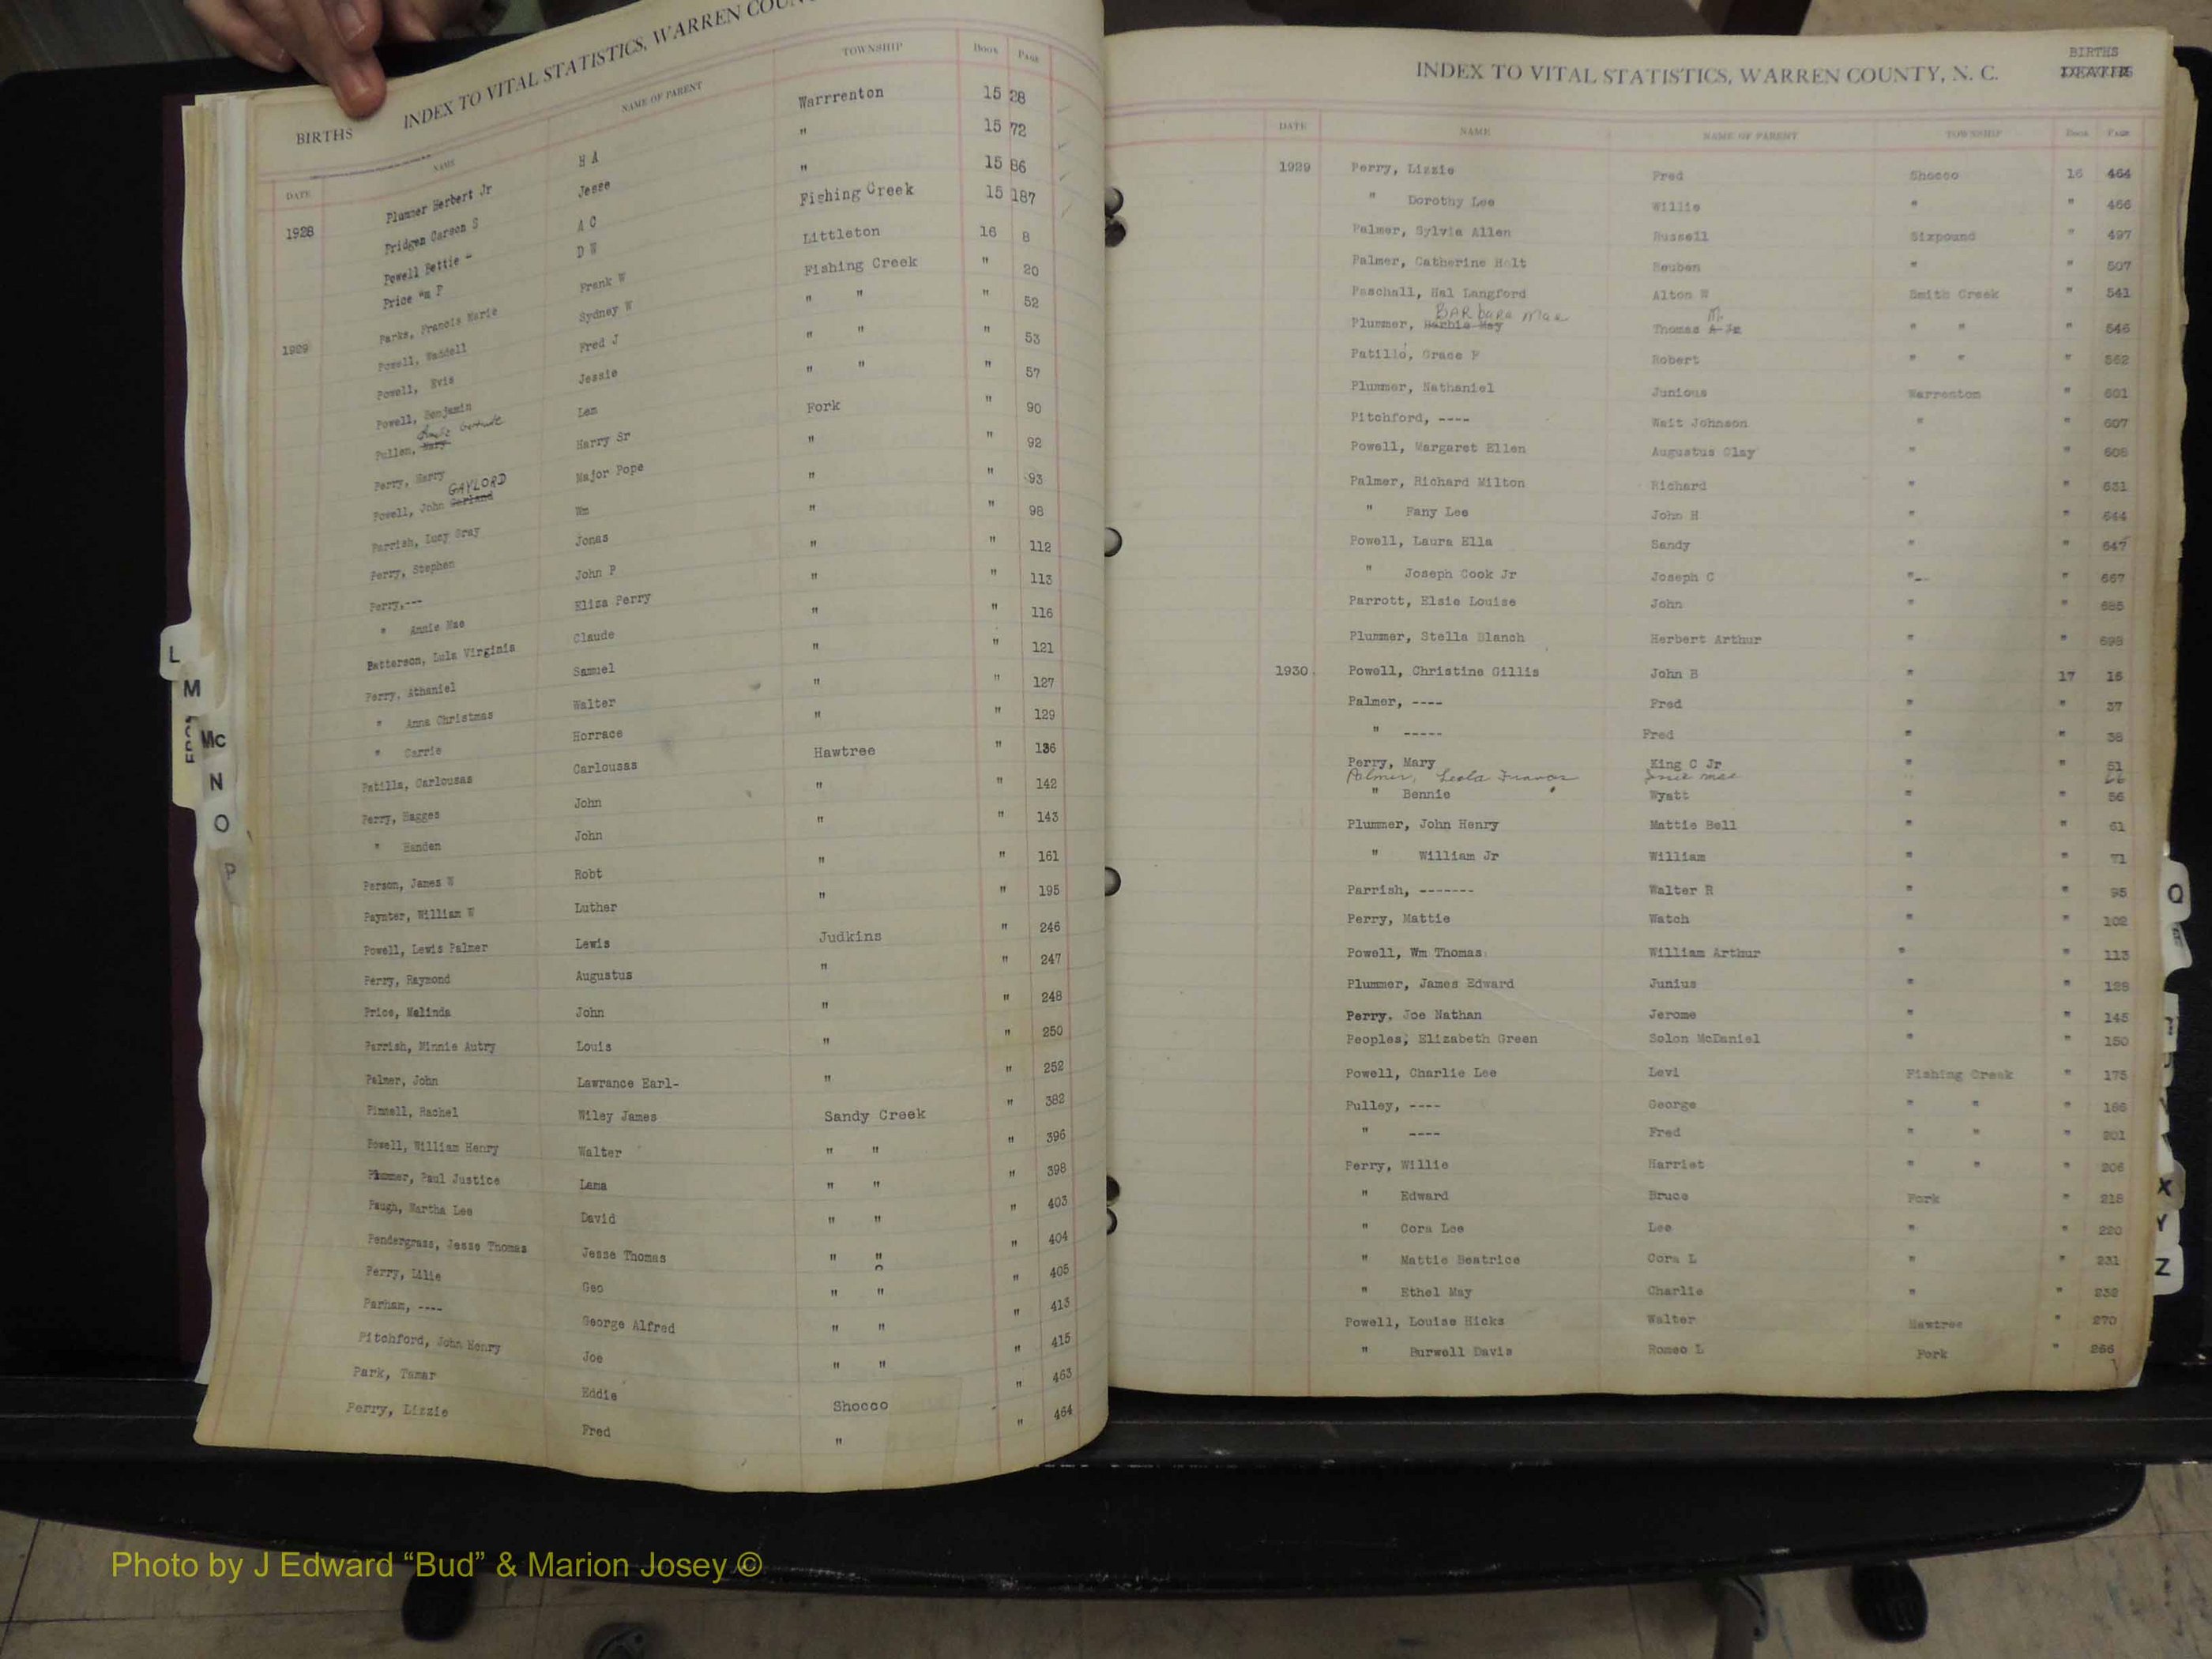 BIRTHS INDEX TO VITAL STATISTICS, WARREN COUN
DATE NAME NAME OF PARENT TOWNSHIP Book Page
1928 Plummer Herbert Jr H A Warrrenton 15 28
Pridgen Carson S Jesse " 15 72
Powell Bettie A C " 15 86
Price "m P D W Fishing Creek 15 187
1929 Parks, Francis Marie Frank W Littleton 16 8
Powell, Waddell Sydney W Fishing Creek " 20
Powell, Evis Fred J " " " 52
Powell, Benjamin Jessie " " " 53
Pullen, Mary Lem " " " 57
Perry, Harry Harry Sr Fork " 90
GAYLORD
Powell, John Garland Major Pope " " 92
Parrish, Lucy Gray Wm " " 93
Perry, Stephen Jonas " " 98
Perry,--- John P " " 112
" Annie Mae Eliza Perry " " 113
Patterson, Lula Virginia Claude " " 116
Perry, Athaniel Samuel " " 121
" Anna Christmas Walter " " 127
" Carrie Horrace " " 129
Patilla, Carlousas Carlousas Hawtree " 136
Perry, Hagges John " " 142
" Handen John " " 143
Person, James W Robt " " 161
Paynter, William W Luther " " 195
Powell, Lewis Palmer Lewis Judkins " 246
Perry, Raymond Augustus " " 247
Price, Malinda John " " 248
Parrish, Minnie Autry Louis " " 250
Palmer, John Lawrance Earl- " " 252
Pinnell, Rachel Wiley James Sandy Creek " 382
Powell, William Henry Walter " " " 396
Plummer, Paul Justice Lama " " " 398
Paugh, Martha Lee David " " " 403
Pendergrass, Jesse Thomas Jesse Thomas " " " 404
Perry, Lilie Geo " " " 405
Parham, ---- George Alfred " " " 413
Pitchford, John Henry Joe " " " 415
Park, Tamar Eddie Shocco " 463
Perry, Lizzie Fred " " 464
L
M
Mc
N
O
P
BIRTHS
INDEX TO VITAL STATISTICS, WARREN COUNTY, N. C. DEATHS
DATE NAME NAME OF PARENT TOWNSHIP Book Page
1929 Perry, Lizzie Fred Shocco 16 464
" Dorothy Lee Willie " " 466
Palmer, Sylvia Allen Russell Sixpound " 497
Palmer, Catherine Holt Reuben " " 507
Paschall, Hal Langford Alton W Smith Creek " 541
BARbara Mae M
Plummer, Barbie May Thomas A Jr " " " 546
Patillo, Grace F Robert " " " 562
Plummer, Nathaniel Junious Warrenton " 601
Pitchford, ---- Wait Johnson " " 607
Powell, Margaret Ellen Augustus Clay " " 608
Palmer, Richard Milton Richard " " 631
" Fany Lee John H " " 644
Powell, Laura Ella Sandy " " 647
" Joseph Cook Jr Joseph C " " 667
Parrott, Elsie Louise John " " 685
Plummer, Stella Blanch Herbert Arthur " " 698
1930 Powell, Christine Gillis John B " 17 15
Palmer, ---- Fred " " 37
" ----- Fred " " 38
Perry, Mary King C Jr " " 51
Palmer, Leola Frances Jessie Mae 66
" Bennie Wyatt " " 56
Plummer, John Henry Mattie Bell " " 61
" William Jr William " " 71
Parrish, ------- Walter R " " 95
Perry, Mattie Watch " " 102
Powell, Wm Thomas William Arthur " " 113
Plummer, James Edward Junius " " 128
Perry, Joe Nathan Jerome " " 145
Peoples, Elizabeth Green Solon McDaniel " " 150
Powell, Charlie Lee Levi Fishing Creek " 175
Pulley, ---- George " " " 186
" ---- Fred " " " 201
Perry, Willie Harriet " " " 206
" Edward Bruce Fork " 218
" Cora Lee Lee " " 220
" Mattie Beatrice Cora L " " 231
" Ethel May Charlie " " 232
Powell, Louise Hicks Walter Hawtree " 270
" Burwell Davis Romeo L Fork " 266
Q
X
Y
Z
Photo by J Edward “Bud” & Marion Josey ©